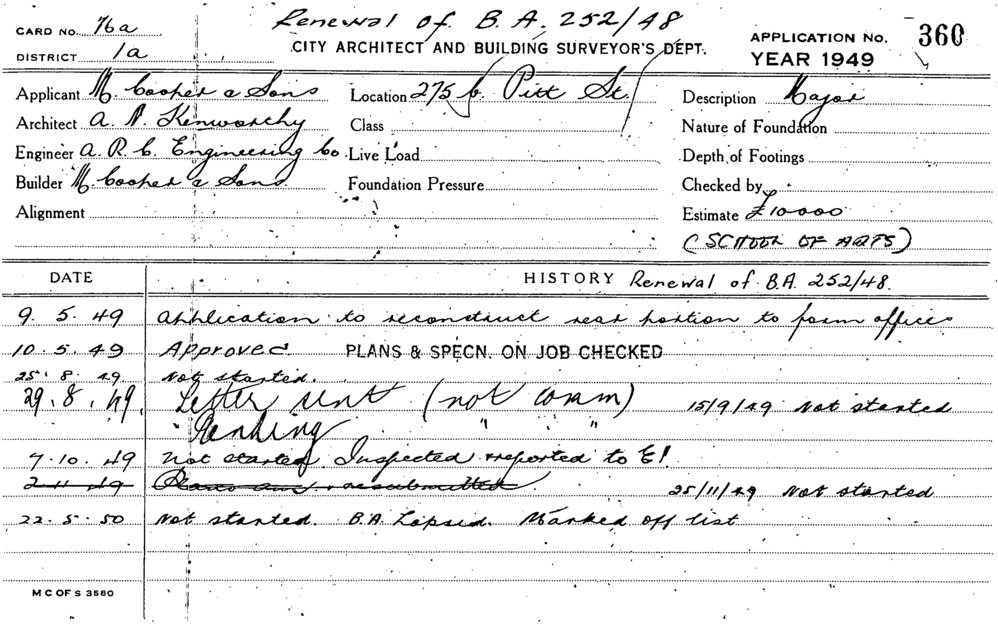 Renewal of B.A. 252/48
CARD No. 76a
CITY ARCHITECT AND BUILDING SURVEYOR'S DEPT.
APPLICATION No. 360
DISTRICT 1a
YEAR 1949
Applicant M. Cooper & Sons Location 275 b. Pitt St. Description Major
Architect A. N. Kenworthy Class Nature of Foundation
Engineer A. R. C. Engineering Co. Live Load Depth of Footings
Builder M. Cooper & Sons. Foundation Pressure Checked by
Alignment Estimate £10000
(SCHOOL OF ARTS)
DATE HISTORY Renewal of B.A. 252/48.
9. 5. 49 Application to reconstruct rear portion to form offices
10. 5. 49 Approved PLANS & SPECN. ON JOB CHECKED
25. 8. 49 Not started.
29. 8. 49. Letter sent (not comm) 15/9/49 Not started
Pending " "
7. 10. 49 Not started. Inspected & reported to
2. 11. 49 Plans and resubmitted. 25/11/49 Not started
22. 5. 50 Not started. B.A. Lapsed. Marked off list
M C OF S 3580